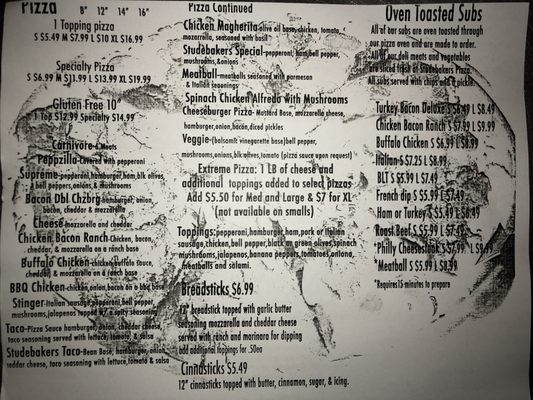 Pizza
8" 12" 14" 16"
1 Topping pizza
S $5.49 M $7.99 L $10 XL $16.99
Specialty Pizza
S $6.99 M $11.99 L $13.99 XL $19.99
Gluten Free 10"
1 Top $12.99 Specialty $14.99
Carnivore-4 Meats
Pepzilla-Covered with pepperoni
Supreme-pepperoni,hamburger,ham,blk olives,
bell peppers,onions,& mushrooms
Bacon Dbl Chzbrg-hamburger, onion,
bacon, cheddar & mozzarella
Cheese-mozzarella and cheddar
Chicken Bacon Ranch-Chicken, bacon,
cheddar, & mozzarella on a ranch base
Buffalo Chicken-chicken,buffalo sauce,
cheddar, & mozzarella on a ranch base
BBQ Chicken-chicken,onion,bacon on a bbq base
Stinger-Italian sausage,pepperoni,bell pepper,
mushrooms,jalapenos topped w/ a spicy seasoning
Taco-Pizza Sauce hamburger, onion, cheddar cheese,
taco seasoning served with lettuce, tomato, & salsa
Studebakers Taco-Bean Base, hamburger, onion,
cheddar cheese, taco seasoning with lettuce,tomato & salsa
Pizza Continued
Chicken Magherita-olive oil base,chicken, tomato,
mozzarella, seasoned with basil
Studebakers Special-pepperoni,ham,bell pepper,
mushrooms,&onions
Meatball-meatballs seasoned with parmesan
& Italian seasonings
Spinach Chicken Alfredo with Mushrooms
Cheeseburger Pizza-Mustard Base, mozzarella cheese,
hamburger,onion,bacon,diced pickles
Veggie-(balsamic vinegarette base)bell pepper,
mushrooms,onions,blk olives,tomato (pizza sauce upon request)
Extreme Pizza: 1 LB of cheese and
additional toppings added to select pizzas
Add $5.50 for Med and Large & $7 for XL
(not available on smalls)
Toppings:pepperoni,hamburger,ham,pork or Italian
sausage,chicken,bell pepper,black or green olives,spinach
mushrooms,jalapenos,banana peppers,tomatoes,onions,
meatballs and salami.
Breadsticks $6.99
12" breadstick topped with garlic butter
seasoning mozzarella and cheddar cheese
served with ranch and marinara for dipping
add additional toppings for .50ea
Cinnasticks $5.49
12" cinnasticks topped with butter, cinnamon, sugar, & icing.
Oven Toasted Subs
All of our subs are oven toasted through
our pizza oven and are made to order.
All of our deli meats and vegetables
are sliced fresh at Studebakers Pizza.
All subs served with chips and a pickle.
Turkey Bacon Deluxe S $6.49 L $8.49
Chicken Bacon Ranch S $7.99 L $9.99
Buffalo Chicken S $6.99 L $8.99
Italian S $7.25 L $8.99
BLT S $5.99 L $7.49
French dip S $5.99 L $7.49
Ham or Turkey S $5.49 L $6.49
Roast Beef S $5.99 L $7.49
*Philly Cheesesteak S $7.99 L $9.99
*Meatball S $5.99 L $8.99
*Requires 15 minutes to prepare